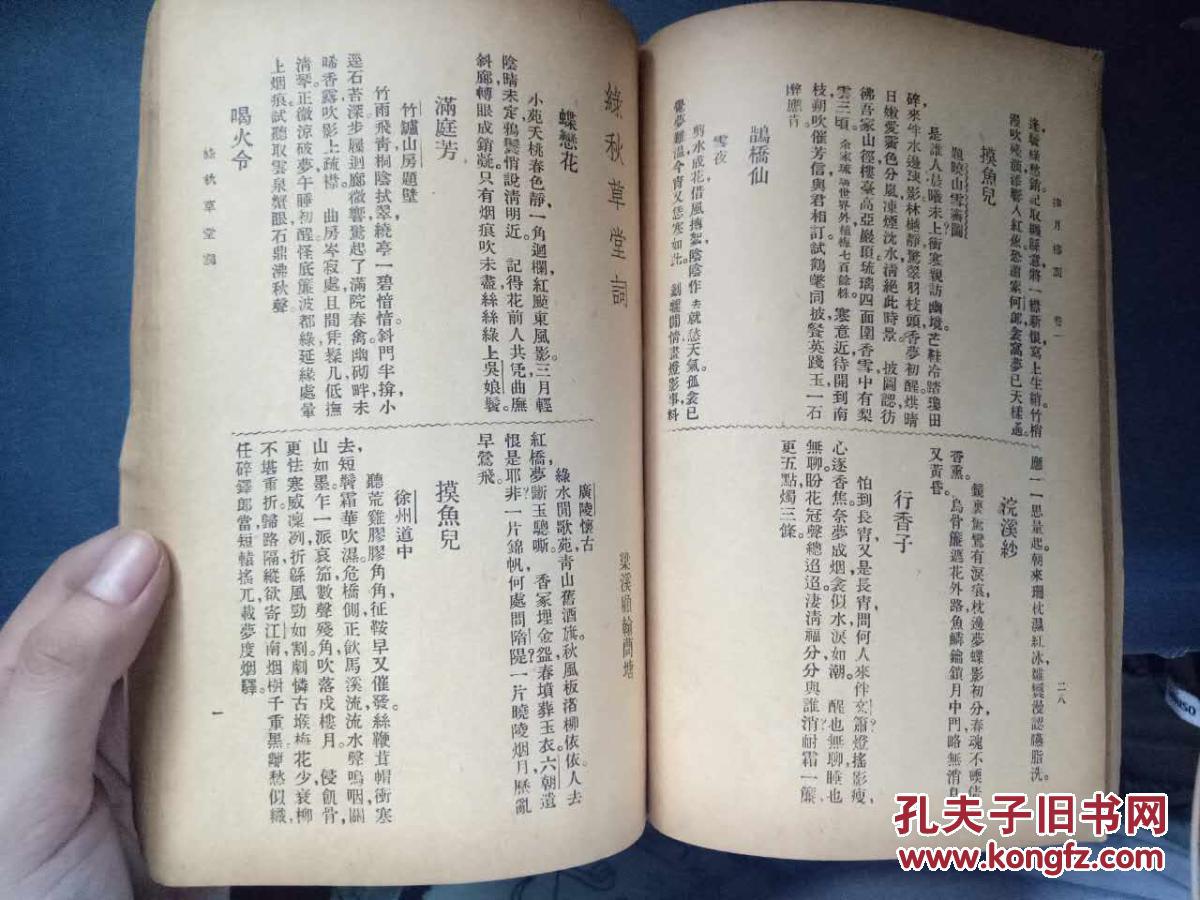 卷一 二八
逢驗綠愁銷記取
摸魚兒
題曉山雪霽圖
是誰人晨曦未上衝寒親訪幽境芒鞋冷踏瓊田
碎來伴水邊踈影林樾靜驚翠羽枝頭香夢初醒烘晴
日嫩愛霽色分嵐凍煙沈水清絕此時景 披圖認彷
彿吾家山徑樓臺高亞巖頂琉璃四面圍香雪中有梨
雲三頃 寒意近待開到南
枝朔吹催芳信與君相訂試鶴氅同披餐英踐玉一石
醉應肯
鵲橋仙
雪夜
剪水成花借風摶絮陰陰作去就愁天氣孤衾已
覺夢難溫今宵又恁寒如此 剗襪閒情畫燈影事料
應一一思量起朝來珊枕濕紅冰雛鬟漫認臙脂洗
浣溪紗
鏡裏驚鸞有淚痕枕邊夢蝶影初分春魂不
香熏 烏骨簾遮花外路魚鱗鑰鎖月中門略無消息
又黃昏
行香子
怕到長宵又是長宵問何人來伴玄簫燈搖影瘦
心逐香焦奈夢成烟衾似水淚如潮 醒也無聊睡也
無聊盼花冠聲總迢迢淒清福分分與誰消耐霜一簾
更五點燭三條
綠秋草堂詞
梁溪顧翰蘭塘
蝶戀花
小苑夭桃春色靜一角迴欄紅颭東風影三月輕
陰晴未定鴉鬟悄說清明近 記得花前人共凭曲廡
斜廊轉眼成銷凝只有烟痕吹未盡絲絲綠上吳娘鬢
滿庭芳
竹爐山房題壁
竹雨飛青桐陰拭翠繞亭一碧愔愔斜門半揜小
逕石苔深步屧迴廊微響驚起了滿院春禽幽砌畔未
晞香露吹影上疏襟 曲房岑寂處且閒凭槼几低撫
清琴正微涼破夢午睡初醒怪底簾波都綠延緣處暈
上烟痕試聽取雲泉蟹眼石鼎沸秋聲
喝火令
廣陵懷古
綠水閒歌苑青山舊酒旗秋風板渚柳依依人去
紅橋夢斷玉驄嘶 香冢埋金盌春墳葬玉衣六朝遺
恨是耶非一片錦帆何處問隋隄一片曉陵烟月歷亂
早鶯飛
摸魚兒
徐州道中
聽荒雞膠膠角角征鞍早又催發絲鞭茸帽衝寒
去短鬢霜華吹濕危橋側正飲馬溪流流水聲嗚咽關
山如墨乍一派哀笳數聲殘角吹落戍樓月 侵飢骨
更怯寒威凜冽折緜風勁如割劇憐古堠梅花少衰柳
不堪重折歸路隔縱欲寄江南烟樹千重黑離愁似織
任碎鐸郎當短轅搖兀載夢度烟驛
綠秋草堂詞
一
孔夫子旧书网
www.kongfz.com